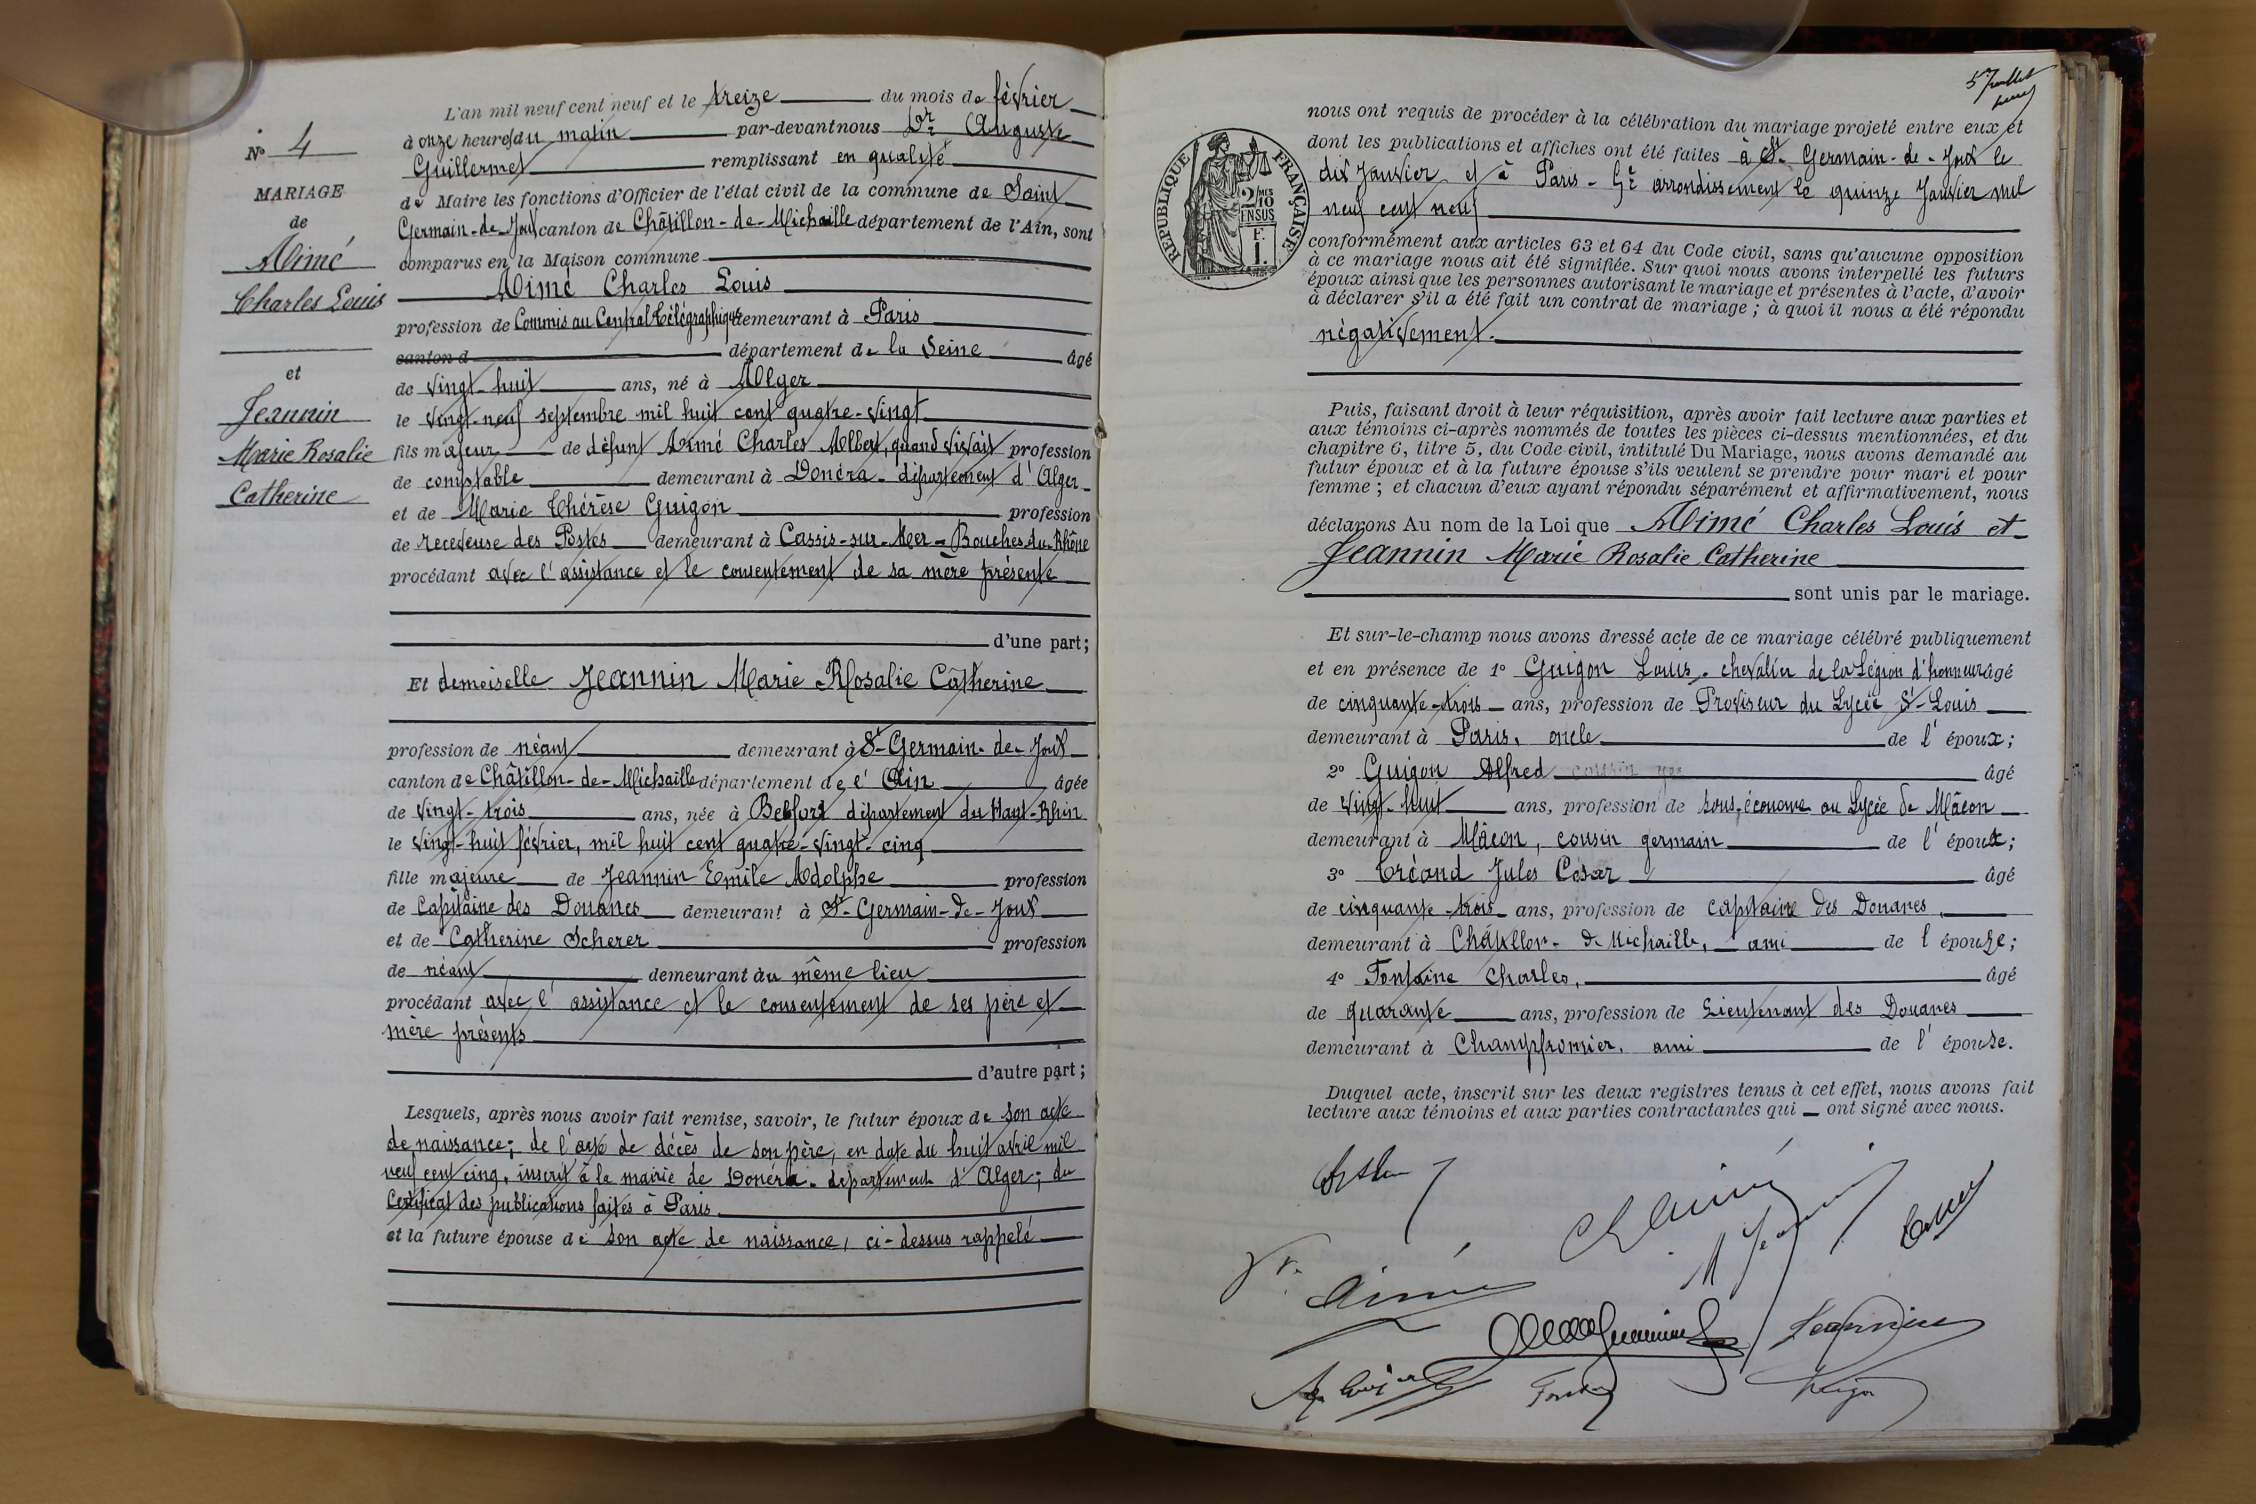 L'an mil neuf cent neuf et le treize du mois de février
à onze heures du matin par-devant nous Dr Auguste
Guillermet remplissant en qualité
de Maire les fonctions d'Officier de l'état civil de la commune de Saint
Germain-de-Joux canton de Châtillon-de-Michaille département de l'Ain, sont
comparus en la Maison commune
Aimé Charles Louis
profession de Commis au Central télégraphique demeurant à Paris
canton d département de la Seine âgé
de vingt-huit ans, né à Alger
le vingt-neuf septembre mil huit cent quatre-vingt
fils majeur de défunt Aimé Charles Albert, quand vivait profession
de comptable demeurant à Douéra-département d'Alger
et de Marie Thérèse Guigon profession
de receveuse des Postes demeurant à Cassis-sur-Mer-Bouches du Rhône
procédant avec l'assistance et le consentement de sa mère présente
d'une part;
Et demoiselle Jeannin Marie Rosalie Catherine
profession de néant demeurant à St-Germain-de-Joux
canton de Châtillon-de-Michaille département de l'Ain âgée
de vingt-trois ans, née à Belfort département du Haut-Rhin
le vingt-huit février, mil huit cent quatre-vingt-cinq
fille majeure de Jeannin Emile Adolphe profession
de Capitaine des Douanes demeurant à St-Germain-de-Joux
et de Catherine Scherer profession
de néant demeurant au même lieu
procédant avec l'assistance et le consentement de ses père et
mère présents
d'autre part;
Lesquels, après nous avoir fait remise, savoir, le futur époux de son acte
de naissance; de l'acte de décès de son père, en date du huit avril mil
neuf cent cinq, inscrit à la mairie de Douéra-département d'Alger; du
certificat des publications faites à Paris
et la future épouse de son acte de naissance, ci-dessus rappelé
No 4
MARIAGE
de
Aimé
Charles Louis
et
Jeannin
Marie Rosalie
Catherine
nous ont requis de procéder à la célébration du mariage projeté entre eux et
dont les publications et affiches ont été faites à St-Germain-de-Joux le
dix Janvier et à Paris-6e arrondissement le quinze Janvier mil
neuf cent neuf
conformément aux articles 63 et 64 du Code civil, sans qu'aucune opposition
à ce mariage nous ait été signifiée. Sur quoi nous avons interpellé les futurs
époux ainsi que les personnes autorisant le mariage et présentes à l'acte, d'avoir
à déclarer s'il a été fait un contrat de mariage; à quoi il nous a été répondu
négativement.
Puis, faisant droit à leur réquisition, après avoir fait lecture aux parties et
aux témoins ci-après nommés de toutes les pièces ci-dessus mentionnées, et du
chapitre 6, titre 5, du Code civil, intitulé Du Mariage, nous avons demandé au
futur époux et à la future épouse s'ils veulent se prendre pour mari et pour
femme; et chacun d'eux ayant répondu séparément et affirmativement, nous
déclarons Au nom de la Loi que Aimé Charles Louis et
Jeannin Marie Rosalie Catherine
sont unis par le mariage.
Et sur-le-champ nous avons dressé acte de ce mariage célébré publiquement
et en présence de 1o Guigon Louis, chevalier de la Légion d'honneur âgé
de cinquante-trois ans, profession de Proviseur du Lycée St-Louis
demeurant à Paris, oncle de l'époux;
2o Guigon Alfred âgé
de vingt-huit ans, profession de sous-économe au Lycée de Mâcon
demeurant à Mâcon, cousin germain de l'époux;
3o Tréand Jules César âgé
de cinquante-trois ans, profession de capitaine des Douanes,
demeurant à Châtillon-de-Michaille, ami de l'épouse;
4o Fontaine Charles, âgé
de quarante ans, profession de Lieutenant des Douanes
demeurant à Champfromier, ami de l'épouse.
Duquel acte, inscrit sur les deux registres tenus à cet effet, nous avons fait
lecture aux témoins et aux parties contractantes qui ont signé avec nous.
Ch Aimé
M Jeannin
Vve Aimé
Jeannin
Guigon
REPUBLIQUE FRANÇAISE
2/10
EN SUS
F.
1.